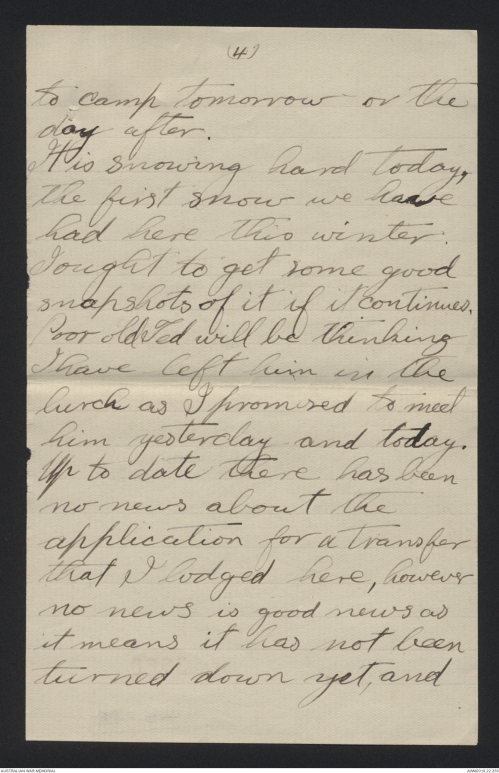 (4)
to camp tomorrow or the
day after.
It is snowing hard today,
the first snow we have
had here this winter.
I ought to get some good
snapshots of it if it continues.
Poor old Ted will be thinking
I have left him in the
lurch as I promised to meet
him yesterday and today.
Up to date there has been
no news about the
application for a transfer
that I lodged here, however
no news is good news as
it means it has not been
turned down yet, and
AUSTRALIAN WAR MEMORIAL